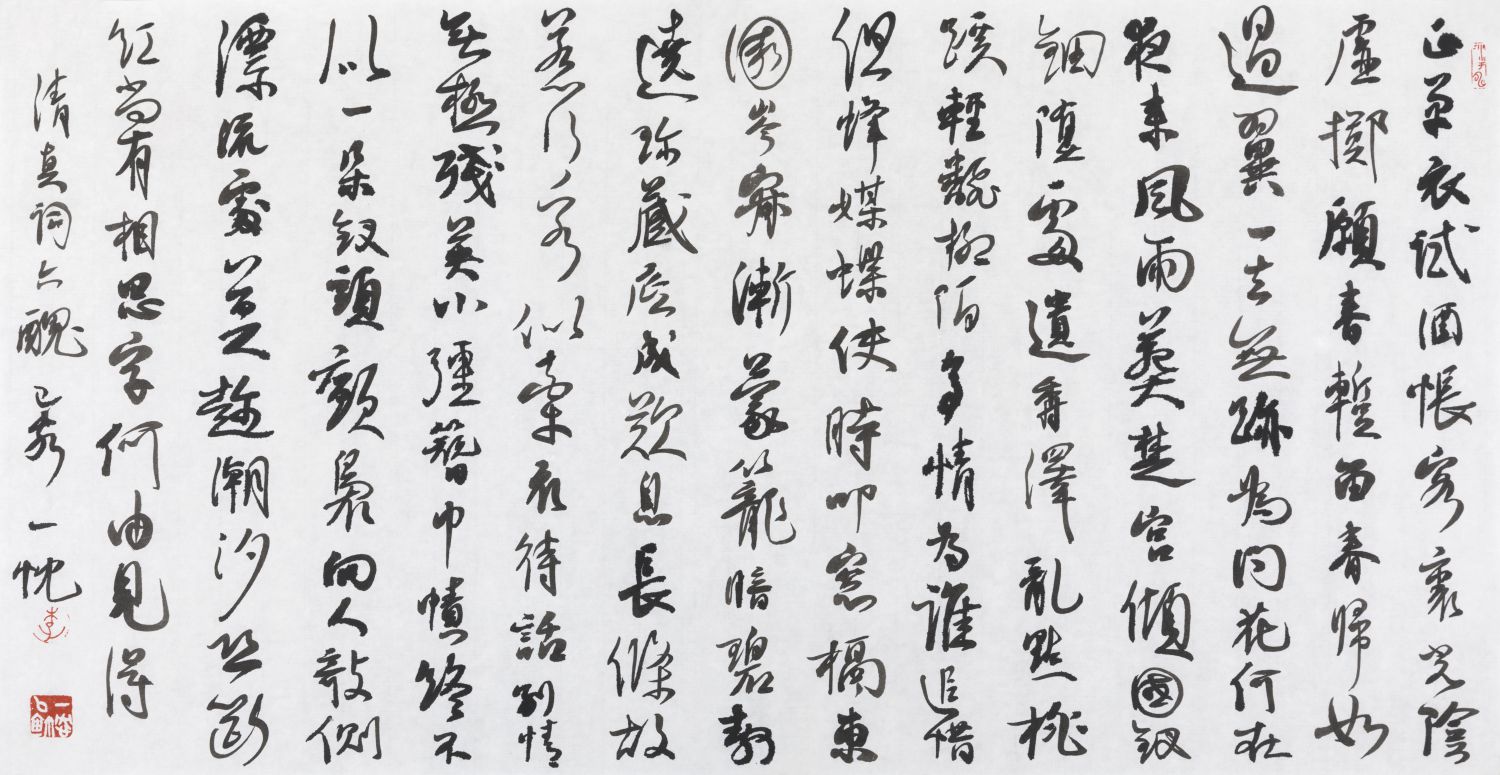 正單衣試酒悵客裏光陰
虛擲願春暫留春歸如
過翼一去無跡為問花何在
夜來風雨葬楚宮傾國釵
鈿墮處遺香澤亂點桃
蹊輕翻柳陌多情為誰追惜
但蜂媒蝶使時叩窗槅東
園岑寂漸蒙籠暗碧靜
遶珍叢底成歎息長條故
惹行客似牽衣待話別情
無極殘英小強簪巾幘終不
似一朵釵頭顫裊向人欹側
漂流處莫趁潮汐恐斷
紅尚有相思字何由見得
清真詞六醜 己亥 一忱
李